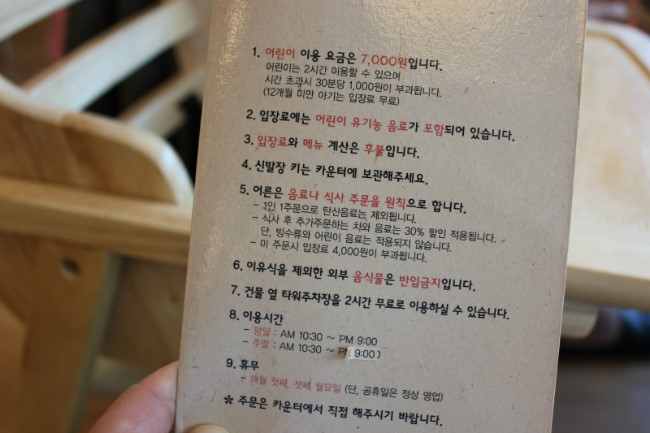 1. 어린이 이용 요금은 7,000원입니다.
어린이는 2시간 이용할 수 있으며
시간 초과시 30분당 1,000원이 부과됩니다.
(12개월 미만 아기는 입장료 무료)
2. 입장료에는 어린이 유기농 음료가 포함되어 있습니다.
3. 입장료와 메뉴 계산은 후불입니다.
4. 신발장 키는 카운터에 보관해주세요.
5. 어른은 음료나 식사 주문을 원칙으로 합니다.
- 1인 1주문으로 탄산음료는 제외됩니다.
- 식사 후 추가주문하는 차와 음료는 30% 할인 적용됩니다.
단, 빙수류와 어린이 음료는 적용되지 않습니다.
- 미 주문시 입장료 4,000원이 부과됩니다.
6. 이유식을 제외한 외부 음식물은 반입금지입니다.
7. 건물 옆 타워주차장을 2시간 무료로 이용하실 수 있습니다.
8. 이용시간
- 평일 : AM 10:30 ~ PM 9:00
- 주말 : AM 10:30 ~ PM 9:00)
9. 휴무
- 매월 첫째, 셋째 월요일 (단, 공휴일은 정상 영업)
* 주문은 카운터에서 직접 해주시기 바랍니다.